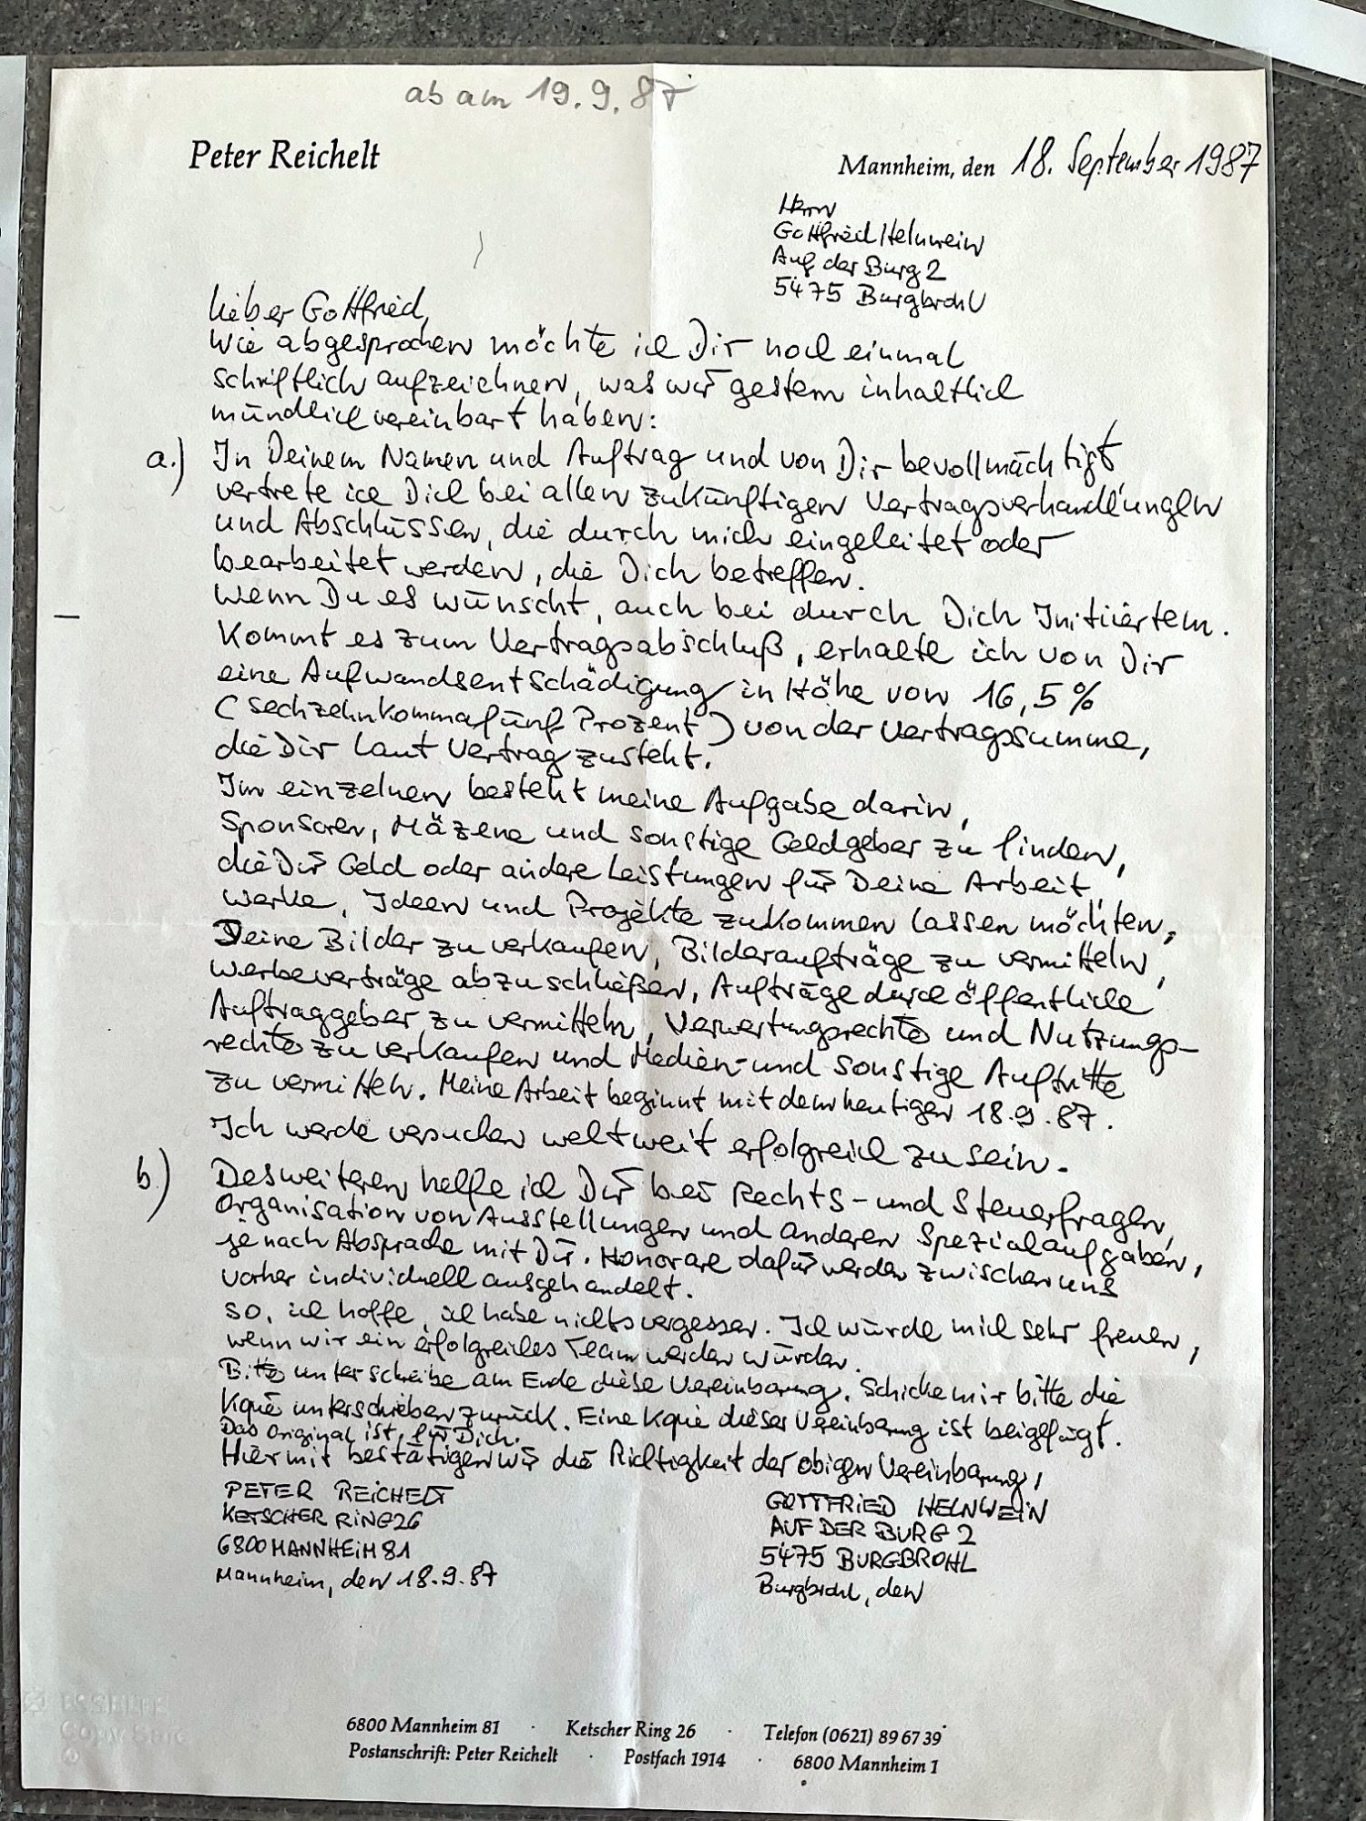 ab am 19.9.87
Peter Reichelt
Mannheim, den 18. September 1987
Herrn
Gottfried Helnwein
Auf der Burg 2
5475 Burgbrohl
Lieber Gottfried,
wie abgesprochen möchte ich Dir noch einmal
schriftlich aufzeichnen, was wir gestern inhaltlich
mündlich vereinbart haben:
a.) In Deinem Namen und Auftrag und von Dir bevollmächtigt
vertrete ich Dich bei allen zukünftigen Vertragsverhandlungen
und Abschlüssen, die durch mich eingeleitet oder
bearbeitet werden, die Dich betreffen.
Wenn Du es wünscht, auch bei durch Dich Initiiertem.
Kommt es zum Vertragsabschluß, erhalte ich von Dir
eine Aufwandsentschädigung in Höhe von 16,5%
(sechzehnkommafünf Prozent) von der Vertragssumme,
die Dir laut Vertrag zusteht.
Im einzelnen besteht meine Aufgabe darin,
Sponsoren, Mäzene und sonstige Geldgeber zu finden,
die Dir Geld oder andere Leistungen für Deine Arbeit,
Werke, Ideen und Projekte zukommen lassen möchten,
Deine Bilder zu verkaufen, Bilderaufträge zu vermitteln,
Werbeverträge abzuschließen, Aufträge durch öffentliche
Auftraggeber zu vermitteln, Verwertungsrechte und Nutzungs-
rechte zu verkaufen und Medien- und sonstige Auftritte
zu vermitteln. Meine Arbeit beginnt mit dem heutigen 18.9.87.
Ich werde versuchen weltweit erfolgreich zu sein.
b.) Desweiteren helfe ich Dir bei Rechts- und Steuerfragen,
Organisation von Ausstellungen und anderen Spezialaufgaben,
je nach Absprache mit Dir. Honorare dafür werden zwischen uns
vorher individuell ausgehandelt.
So, ich hoffe, ich habe nichts vergessen. Ich würde mich sehr freuen,
wenn wir ein erfolgreiches Team werden würden.
Bitte unterschreibe am Ende diese Vereinbarung. Schicke mir bitte die
Kopie unterschrieben zurück. Eine Kopie dieser Vereinbarung ist beigefügt.
Das Original ist für Dich.
Hiermit bestätigen wir die Richtigkeit der obigen Vereinbarung,
PETER REICHELT
KETSCHER RING 26
6800 MANNHEIM 81
Mannheim, den 18.9.87
GOTTFRIED HELNWEIN
AUF DER BURG 2
5475 BURGBROHL
Burgbrohl, den
6800 Mannheim 81 · Ketscher Ring 26 · Telefon (0621) 89 67 39
Postanschrift: Peter Reichelt · Postfach 1914 · 6800 Mannheim 1